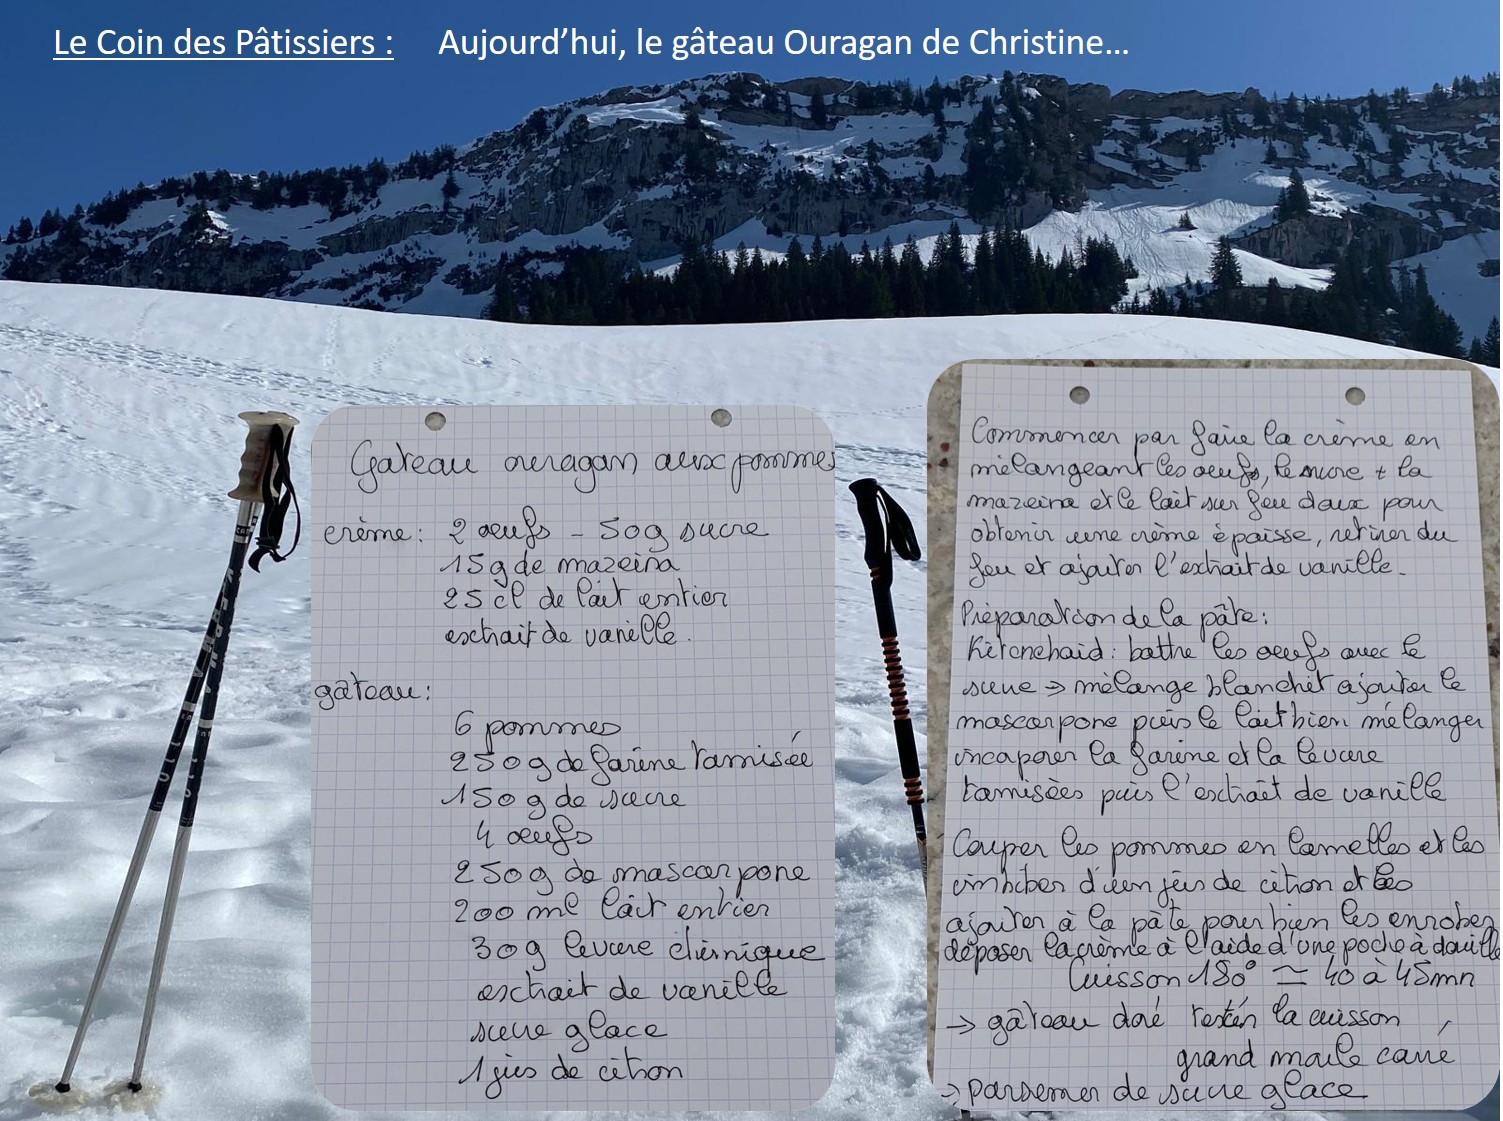 Le Coin des Pâtissiers : Aujourd’hui, le gâteau Ouragan de Christine…
Gateau ouragan aux pommes
crème : 2 œufs - 50g sucre
15g de mazeina
25 cl de lait entier
extrait de vanille.
gâteau :
6 pommes
250g de farine tamisée
150g de sucre
4 œufs
250g de mascarpone
200 ml lait entier
30g levure chimique
extrait de vanille
sucre glace
1 jus de citron
Commencer par faire la crème en
mélangeant les œufs, le sucre + la
mazeina et le lait sur feu doux pour
obtenir une crème épaisse, retirer du
feu et ajouter l'extrait de vanille.
Préparation de la pâte :
Kitenchaid : battre les œufs avec le
sucre → mélange blanchit ajouter le
mascarpone puis le lait bien mélanger
incaporer la farine et la levure
tamisées puis l'extrait de vanille
Couper les pommes en lamelles et les
imbiber d'un jus de citron et les
ajouter à la pâte pour bien les enrober
déposer la crème à l'aide d'une poche à douille
Cuisson 180° ≃ 40 à 45mn
→ gâteau doré tester la cuisson
grand moule carré
→ parsemer de sucre glace